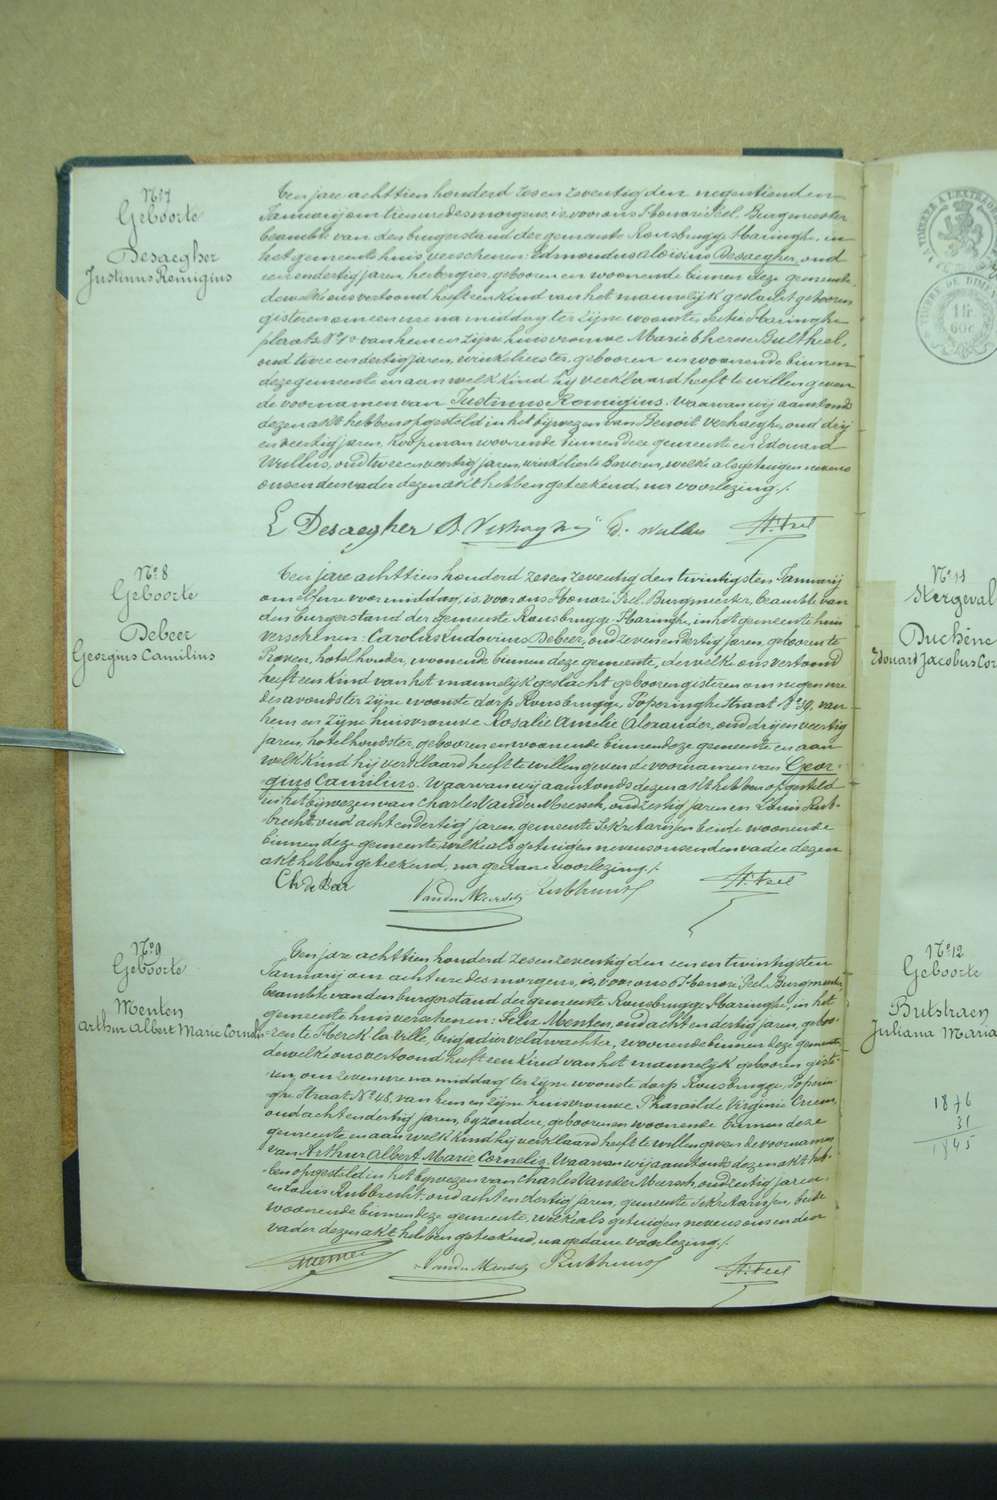 N° 7
Geboorte
Desaegher
Justinus Remigius
Ten jare achttien honderd zes en zeventig den negentienden
Januarij om tien ure des morgens, is voor ons Honoré Peel, Burgmeester
beambte van den burgerstand der gemeente Rousbrugge Haringhe, in
het gemeente huis verschenen: Edmondus aloisius Desaegher, oud
een en dertig jaren, herbergier, geboren en woonende binnen deze gemeente,
dewelke ons vertoond heeft een kind van het mannelijk geslacht geboren
gisteren om een ure na middag ter zijne woonste, sectie Haringhe
plaats N° van hem en zijne huisvrouwe Marie Therese Bultheel,
oud twee en dertig jaren, winkelierster, gebooren en woonende binnen
deze gemeente en aan welk kind hij verklaard heeft te willen geven
de voornamen van Justinus Remigius. Waarvan wij aanstonds
dezen akt hebben opgesteld in het bijwezen van Benoit Verhaeghe, oud drij
en veertig jaren, koopman woonende binnen deze gemeente en Edouard
Wullus, oud twee en veertig jaren, winkelier te Beveren, welke als getuigen nevens
ons en den vader dezen akt hebben geteekend, na voorlezing./.
E Desaegher B. Verhaeghe E. Wullus H. Peel
N° 8
Geboorte
Debeer
Georgius Camilius
Ten jare achttien honderd zes en zeventig den twintigsten Januarij
om elf ure voormiddag, is voor ons Honoré Peel, Burgmeester, beambte van
den burgerstand der gemeente Rousbrugge-Haringhe, in het gemeente huis
verschenen: Carolus Ludovicus Debeer, oud zeven en dertig jaren, geboren te
Proven, hotelhouder, woonende binnen deze gemeente, dewelke ons vertoond
heeft een kind van het mannelijk geslacht gebooren gisteren om negen ure
des avonds ter zijne woonste dorp Rousbrugge, Poperinghe straat N° 59, van
hem en zijne huisvrouwe Rosalie Amelie Alexander, oud drij en veertig
jaren, hotelhoudster, gebooren en woonende binnen deze gemeente en aan
welk kind hij verklaard heeft te willen geven de voornamen van Geor-
gius Camilius. Waarvan wij aanstonds dezen akt hebben opgesteld
in het bijwezen van Charles Van der Meersch, oud zestig jaren en Louis Rub-
brecht, oud acht en dertig jaren, gemeente Sekretarissen beide woonende
binnen deze gemeente, welke als getuigen nevens ons en den vader dezen
akt hebben geteekend, na gedane voorlezing./.
Ch de Beer Vander Meersch Rubbrecht H. Peel
N° 9
Geboorte
Menten
Arthur Albert Marie Cornelis
Ten jare achttien honderd zes en zeventig den een en twintigsten
Januarij om acht ure des morgens, is voor ons Honoré Peel, Burgmeester,
beambte van den burgerstand der gemeente Rousbrugge Haringhe, in het
gemeente huis verschenen: Felix Menten, oud acht en dertig jaren, geboo-
ren te Herck la Ville, brigadier veldwachter, woonende binnen deze gemeente
dewelke ons vertoond heeft een kind van het mannelijk gebooren giste-
ren, om zeven ure na middag ter zijne woonste dorp Rousbrugge, Poperin-
ghe Straat N° 48, van hem en zijne huisvrouwe Pharaïlde Virginie
oud acht en dertig jaren, byzondere, gebooren en woonende binnen deze
gemeente en aan welk kind hij verklaard heeft te willen geven de voornamen
van Arthur Albert Marie Cornelis. Waarvan wij aanstonds dezen akt heb-
ben opgesteld in het bijwezen van Charles Van der Meersch, oud zestig jaren,
en Louis Rubbrecht, oud acht en dertig jaren, gemeente Sekretarissen, beide
woonende binnen deze gemeente, welke als getuigen nevens ons en den
vader dezen akt hebben geteekend, na gedane voorlezing./.
Menten Vander Meersch Rubbrecht H. Peel
TIMBRE DE DIMEN
1 fr.
60c
N° 11
Stergeval
Duchêne
Edouard Jacobus Cor
N° 12
Geboorte
Butstraen
Juliana Maria
1876
31
1845